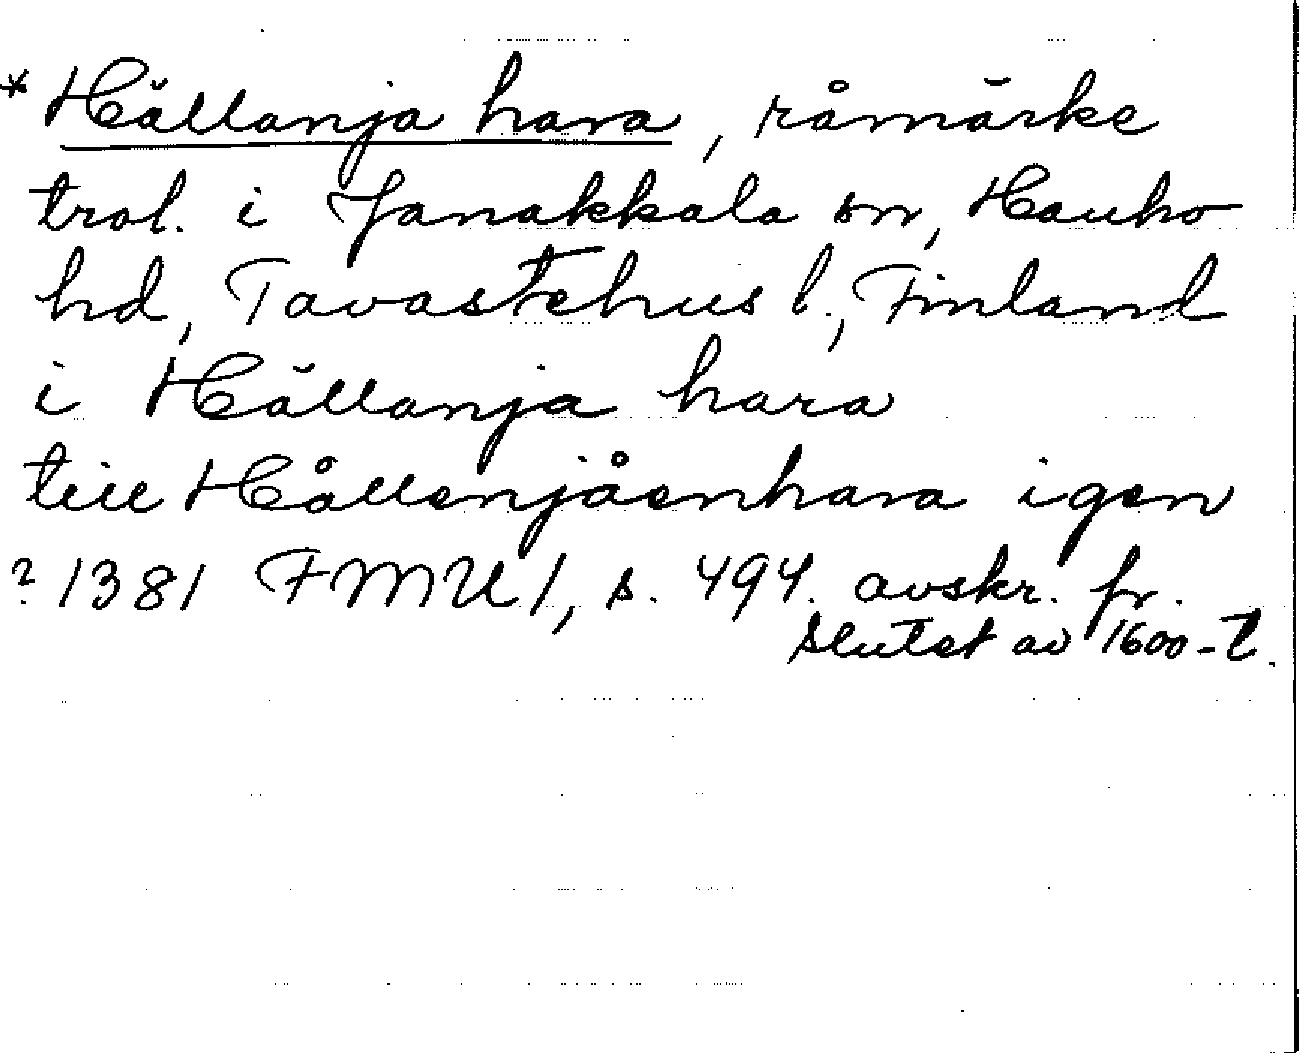 * Hällanja hara, råmärke
trol. i Janakkala sn, Hauho
hd, Tavastehus l., Finland
i Hällanja hara
till Hållenjåenhara igen
? 1381 FMU 1, s. 494. avskr. fr.
slutet av 1600-t.